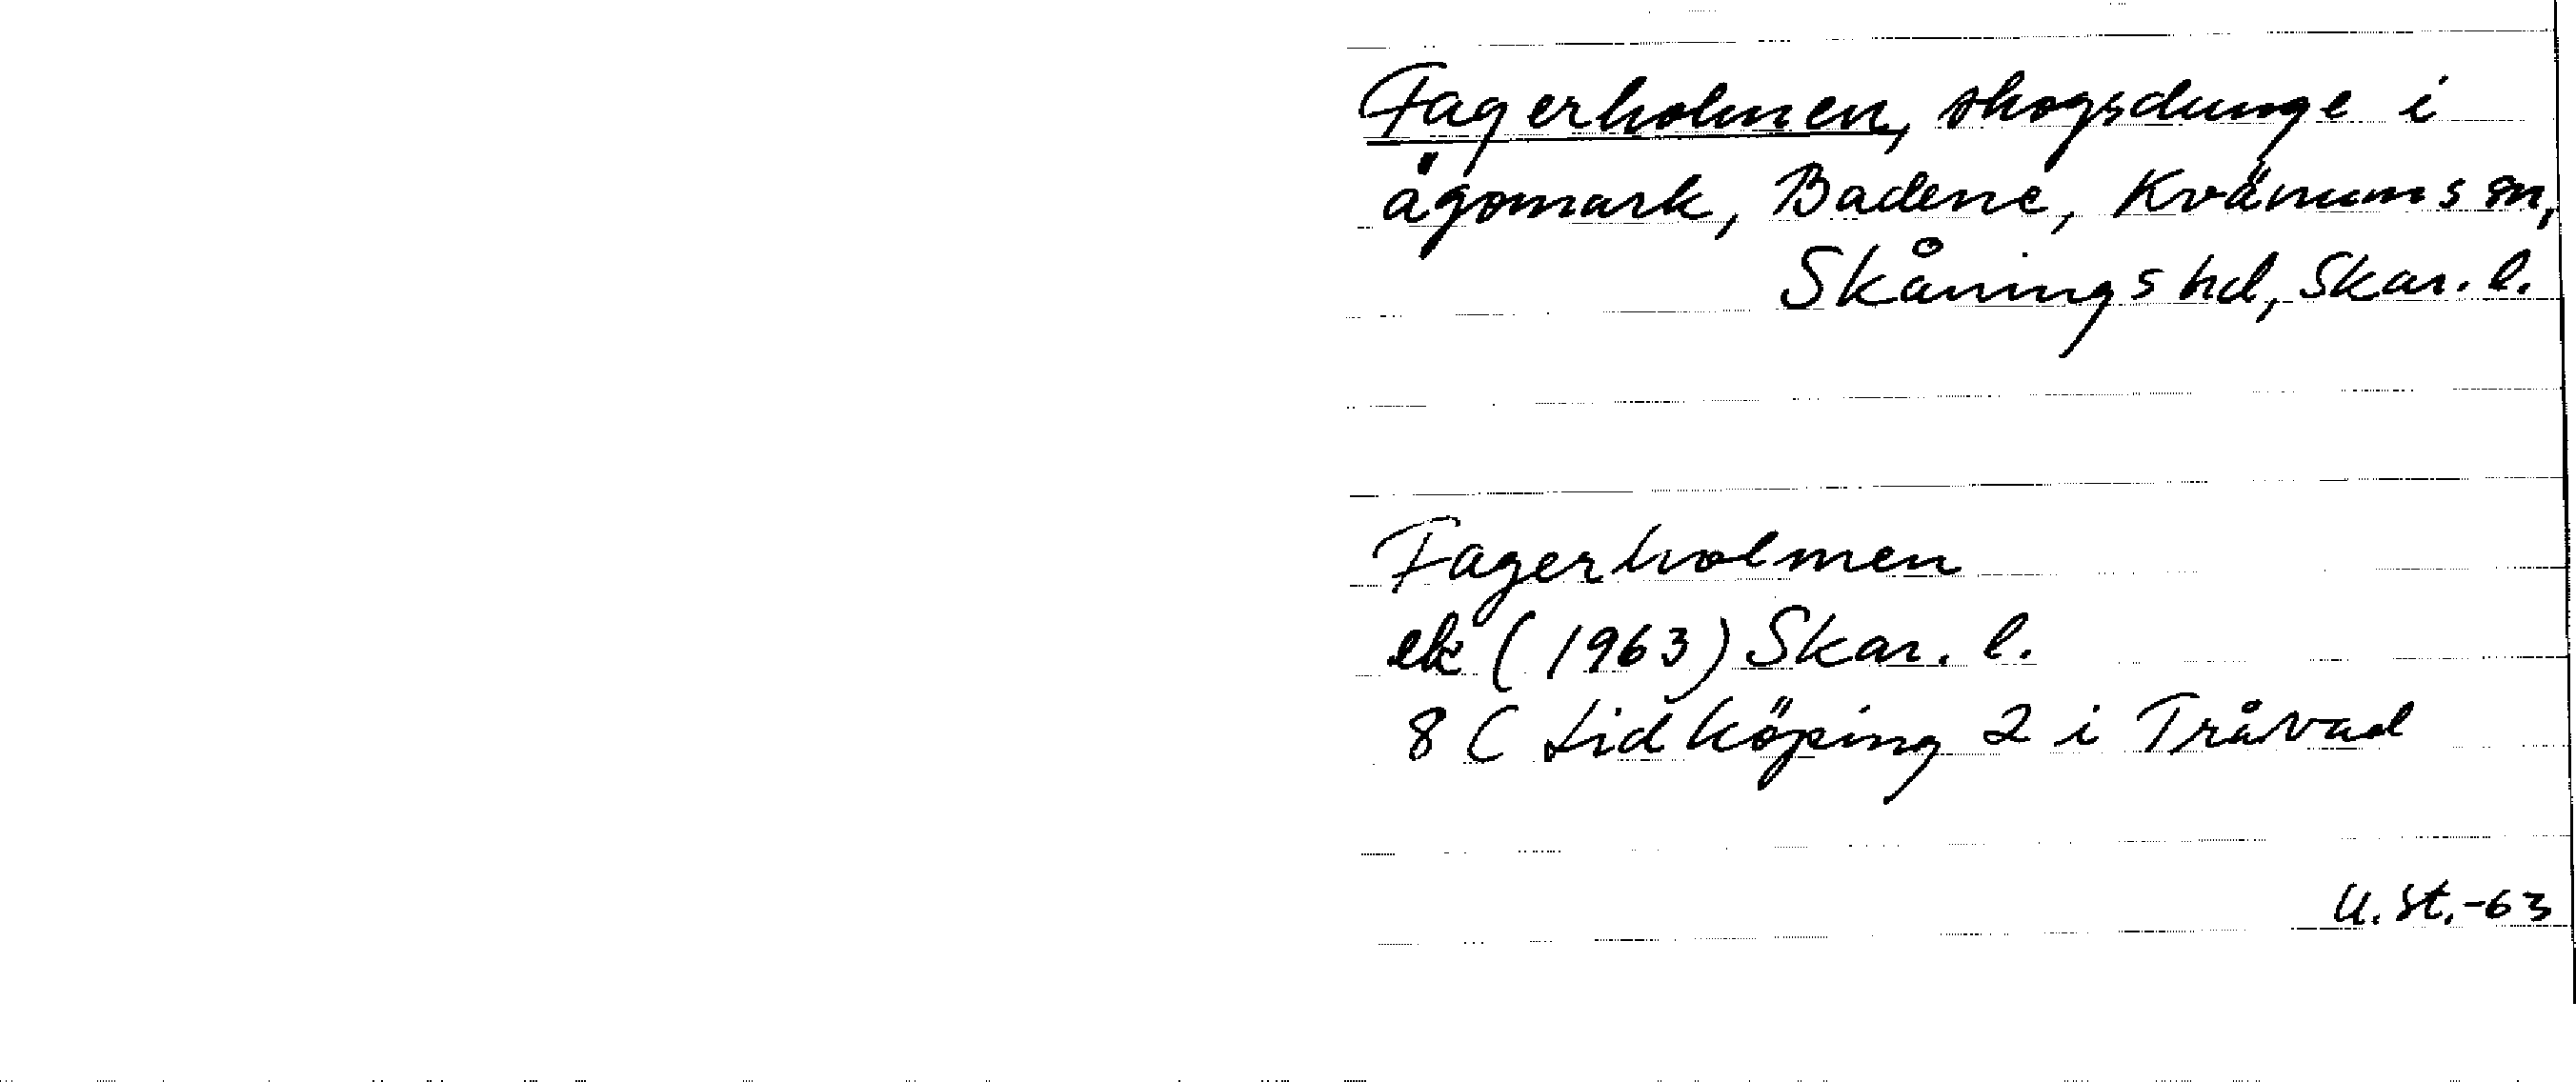 Fagerholmen, skogsdunge i
ägomark, Badene, Kvänums sn,
Skånings hd, Skar. l.
Fagerholmen
ek (1963) Skar. l.
8 C Lidköping 2 i Tråvad
U. St. -63